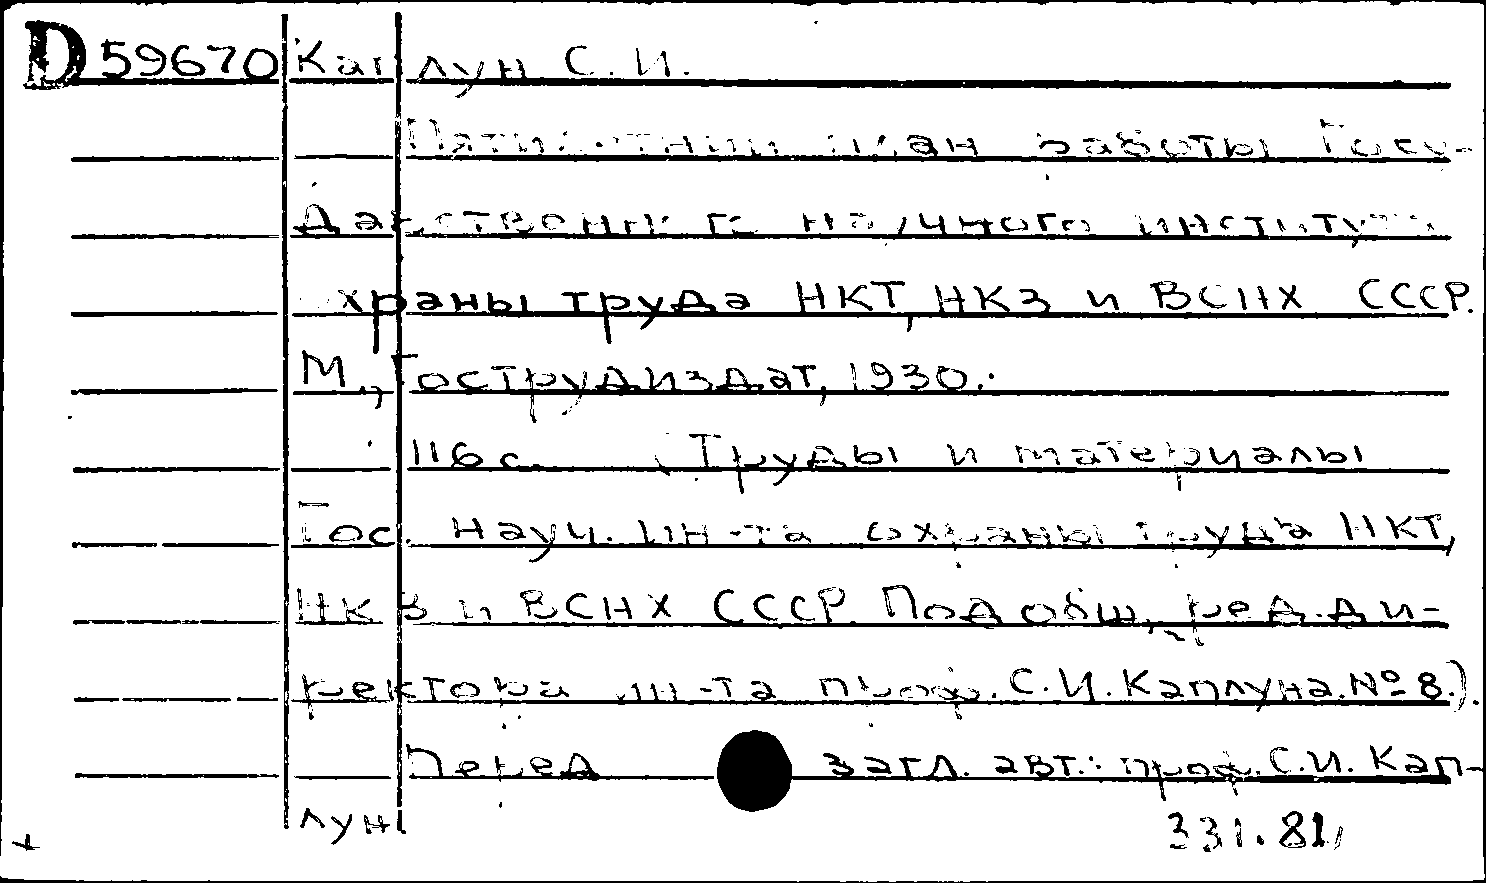 D 59670 Каплун С. И.
Пятилетний план работы Госу-
дарственного научного института
охраны труда НКТ, НКЗ и ВСНХ СССР.
М., Гострудиздат, 1930.
116 с. (Труды и материалы
Гос. науч. ин-та охраны труда НКТ,
НКЗ и ВСНХ СССР. Под общ. ред. ди-
ректора ин-та проф. С.И. Каплуна. № 8.).
Перед загл. авт.: проф. С.И. Кап-
лун
331.81